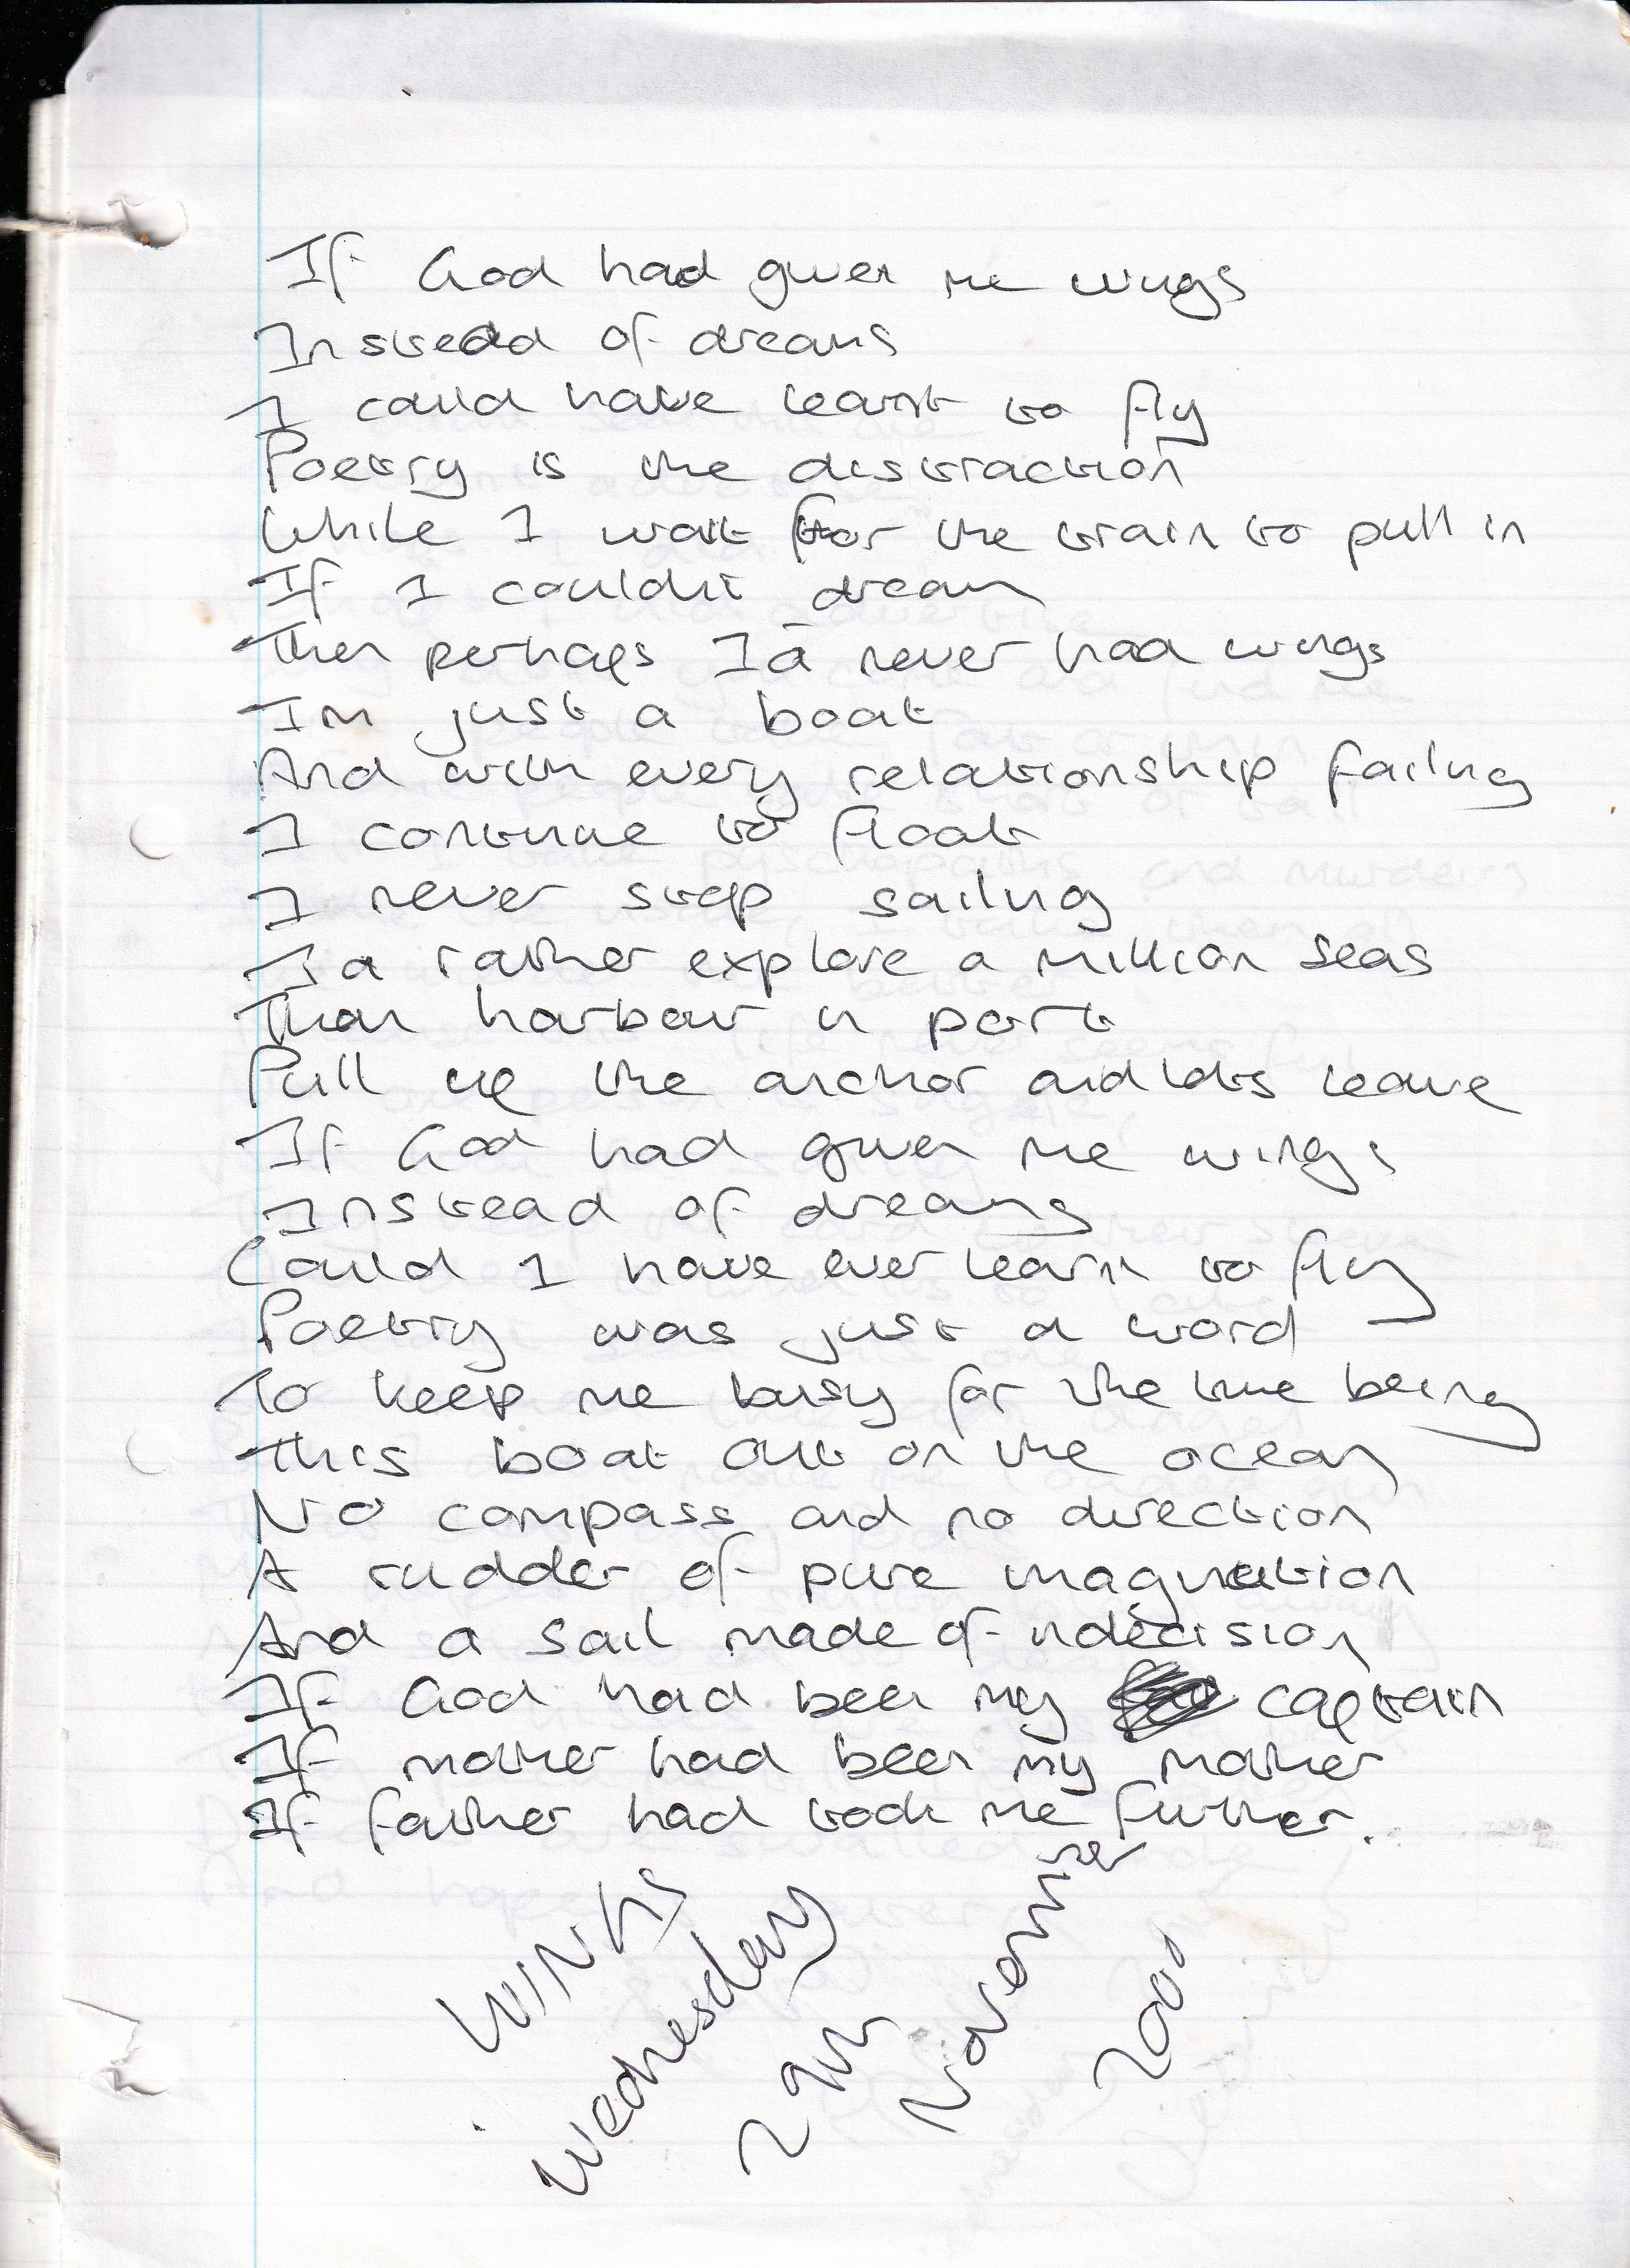 If God had given me wings
Instead of dreams
I could have learnt to fly
Poetry is the distraction
While I wait for the train to pull in
If I couldnt dream
Then perhaps Id never had wings
Im just a boat
And with every relationship failing
I continue to float
I never stop sailing
Id rather explore a million seas
Than harbour in port
Pull up the anchor and lets leave
If God had given me wings
Instead of dreams
Could I have ever learn to fly
Poetry was just a word
To keep me busy for the time being
This boat out on the ocean
No compass and no direction
A rudder of pure imagination
And a sail made of indecision
If God had been my captain
If mother had been my mother
If father had took me further.
WINGS
Wednesday
29th
November
2000